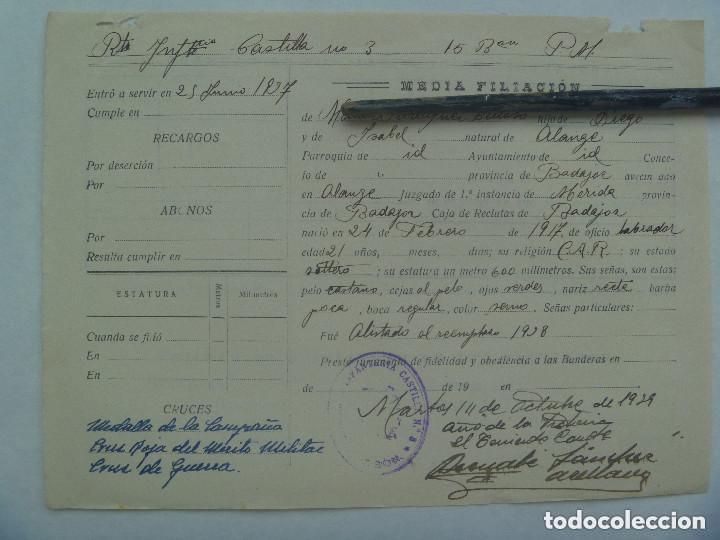 Rto Inftria Castilla no 3 15 Bon P.M.
MEDIA FILIACIÓN
Entró a servir en 25 Junio 1937
Cumple en
RECARGOS
Por deserción
Por
ABONOS
Por
Resulta cumplir en
ESTATURA Metros Milímetros
Cuando se filió
En
En
CRUCES
Medalla de la Campaña
Cruz Roja del Mérito Militar
Cruz de Guerra.
de hijo de Diego
y de Isabel natural de Alange
Parroquia de id Ayuntamiento de id Conce-
jo de " provincia de Badajoz avecindado
en Alange Juzgado de 1.ª instancia de Mérida provin-
cia de Badajoz Caja de Reclutas de Badajoz
nació en 24 de Febrero de 1917 de oficio labrador
edad 21 años, meses, días; su religión C.A.R.; su estado
soltero; su estatura un metro 600 milímetros. Sus señas, son estas:
pelo castaño, cejas al pelo, ojos verdes, nariz recta barba
poca, boca regular, color sano. Señas particulares:
Fué Alistado al reemplazo 1938
Prestó juramento de fidelidad y obediencia a las Banderas en
de de 19 en
INFANTERIA CASTILLA N.º 3
Martos 14 de Octubre de 1939
Año de la Victoria
El Comandante
todocoleccion
todocoleccion.net